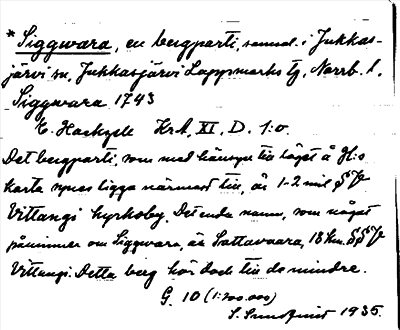 * Siggwara, en bergparti, samml. i Jukkas-
järvi sn, Jukkasjärvi Lappmarks tg, Norrb. l.
Siggwara 1743
E. Hackzell Krk, XI, D. 1:o.
Det bergparti, som med hänsyn till läget å H:s
karta synes ligga närmast till, är 1-2 mil SV
Vittangi kyrkoby. Det enda namn, som något
påminner om Siggwara, är Sattavaara, 18 km. SSV
Vittangi. Detta berg hör dock till de mindre.
G. 10 (1:200.000)
1935.